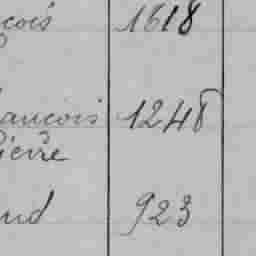 çois 1618
ancois 1248
Pierre
nd 923